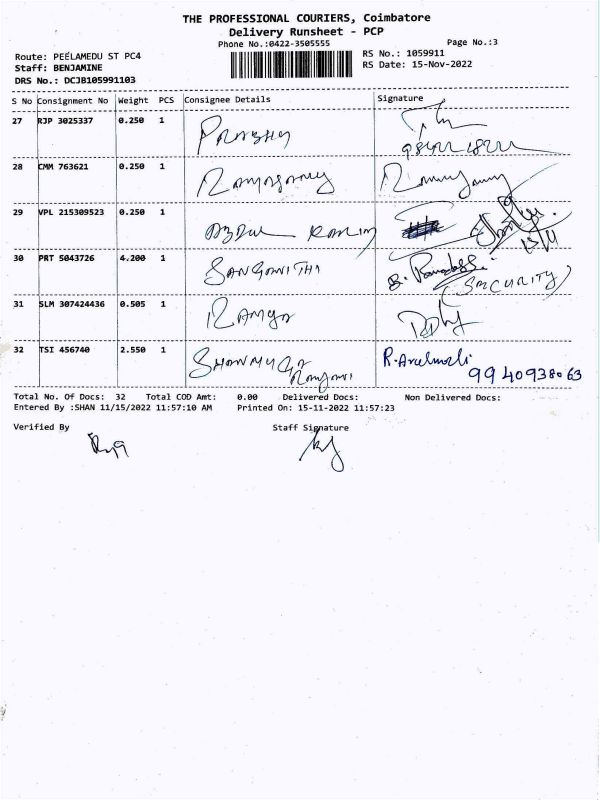 THE PROFESSIONAL COURIERS, Coimbatore
Delivery Runsheet - PCP
Phone No.:0422-3505555
Page No.:3
Route: PEELAMEDU ST PC4
RS No.: 1059911
Staff: BENJAMINE
RS Date: 15-Nov-2022
DRS No.: DCJB105991103
S No Consignment No Weight PCS Consignee Details Signature
27 RJP 3025337 0.250 1 PRABHU
28 CMM 763621 0.250 1 Ramasamy Ramasamy
29 VPL 215309523 0.250 1 ABDUL KARIM
15/11
30 PRT 5043726 4.200 1 SANGAVITHI
(SECURITY)
31 SLM 307424436 0.505 1 RAMYA
32 TSI 456740 2.550 1 SHANMUGA R.Arulmozhi
9940938063
Total No. Of Docs: 32 Total COD Amt: 0.00 Delivered Docs: Non Delivered Docs:
Entered By :SHAN 11/15/2022 11:57:10 AM Printed On: 15-11-2022 11:57:23
Verified By Staff Signature